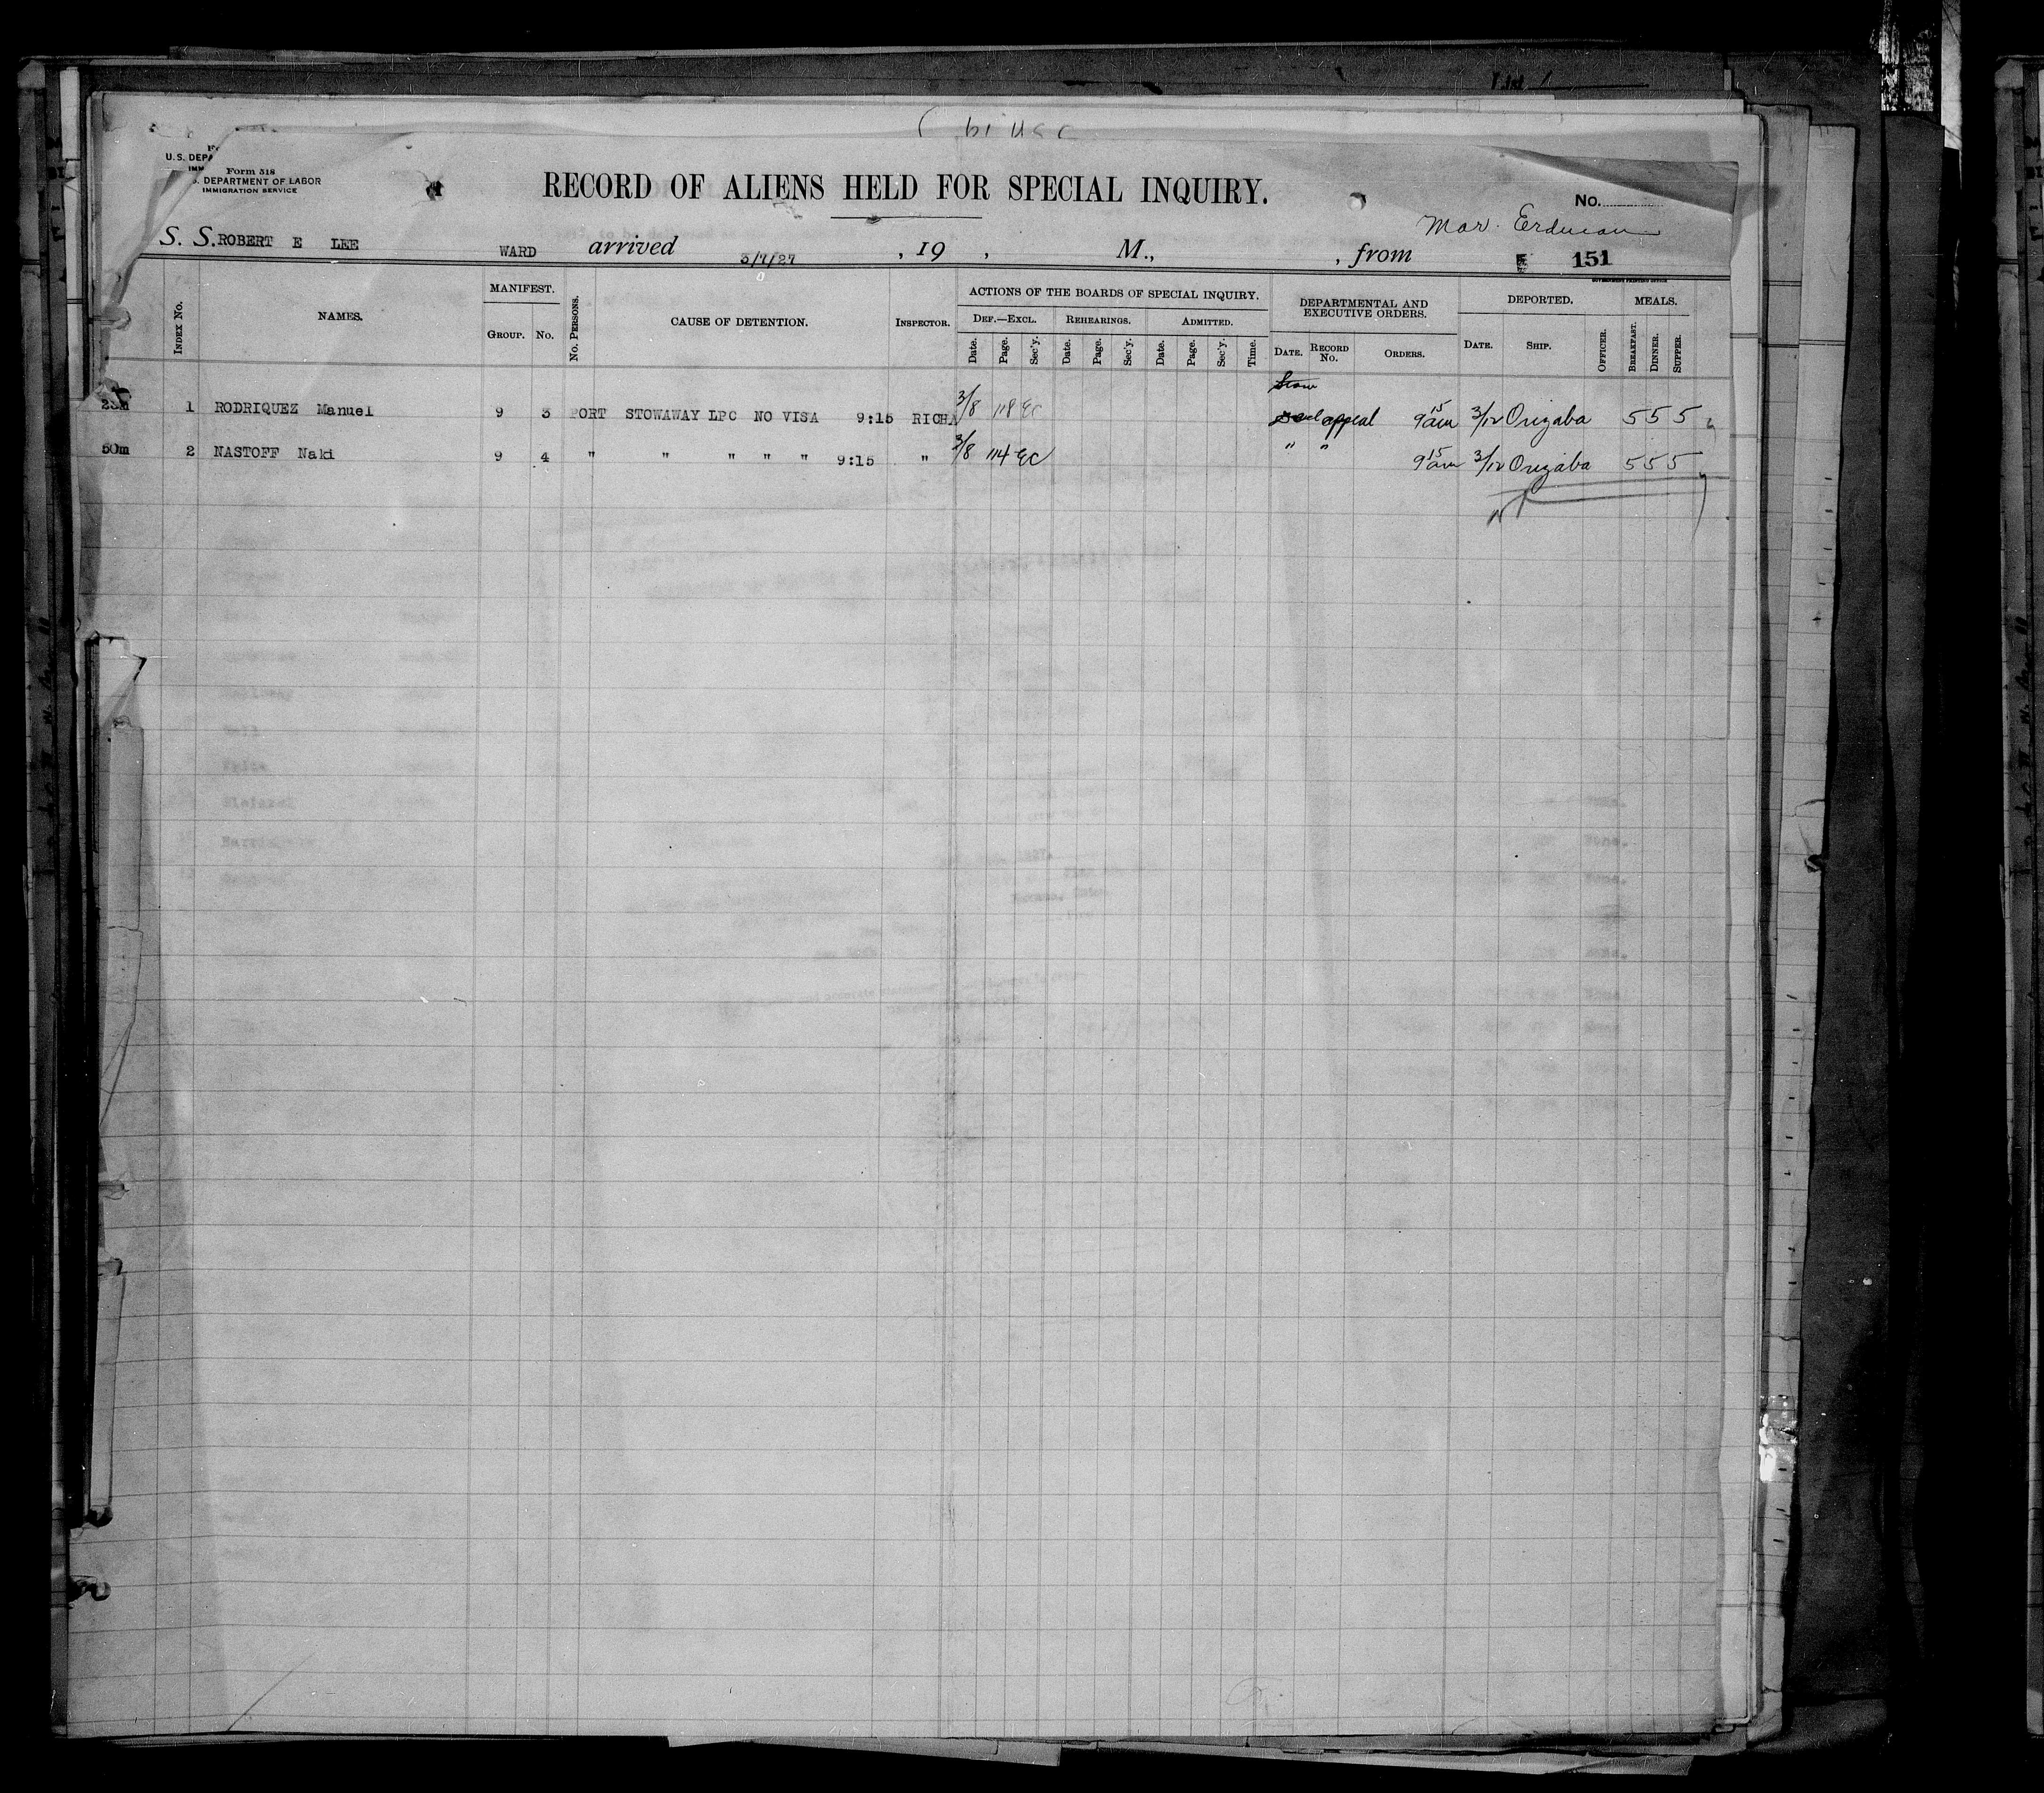 Form 518
U.S. DEPA
S. DEPARTMENT OF LABOR
IMMIGRATION SERVICE
RECORD OF ALIENS HELD FOR SPECIAL INQUIRY.
No.
Mor. Erdman
S. S. ROBERT E LEE WARD arrived 3/7/27, 19 , M., , from 151
GOVERNMENT PRINTING OFFICE
INDEX NO. NAMES. MANIFEST. GROUP. NO. NO. PERSONS. CAUSE OF DETENTION. INSPECTOR. ACTIONS OF THE BOARDS OF SPECIAL INQUIRY. DEPARTMENTAL AND EXECUTIVE ORDERS. DEPORTED. MEALS.
DEF.—EXCL. REHEARINGS. ADMITTED.
Date. Page. Sec'y. Date. Page. Sec'y. Date. Page. Sec'y. Time. DATE. RECORD NO. ORDERS. DATE. SHIP. OFFICER. BREAKFAST. DINNER. SUPPER.
23m 1 RODRIQUEZ Manuel 9 3 PORT STOWAWAY LPC NO VISA 9:15 RICHA 3/8 118 EC appeal 9 15 am 3/12 Orizaba 5 5 5
50m 2 NASTOFF Naki 9 4 " " " " " 9:15 " 3/8 114 EC " " 9 15 am 3/12 Orizaba 5 5 5